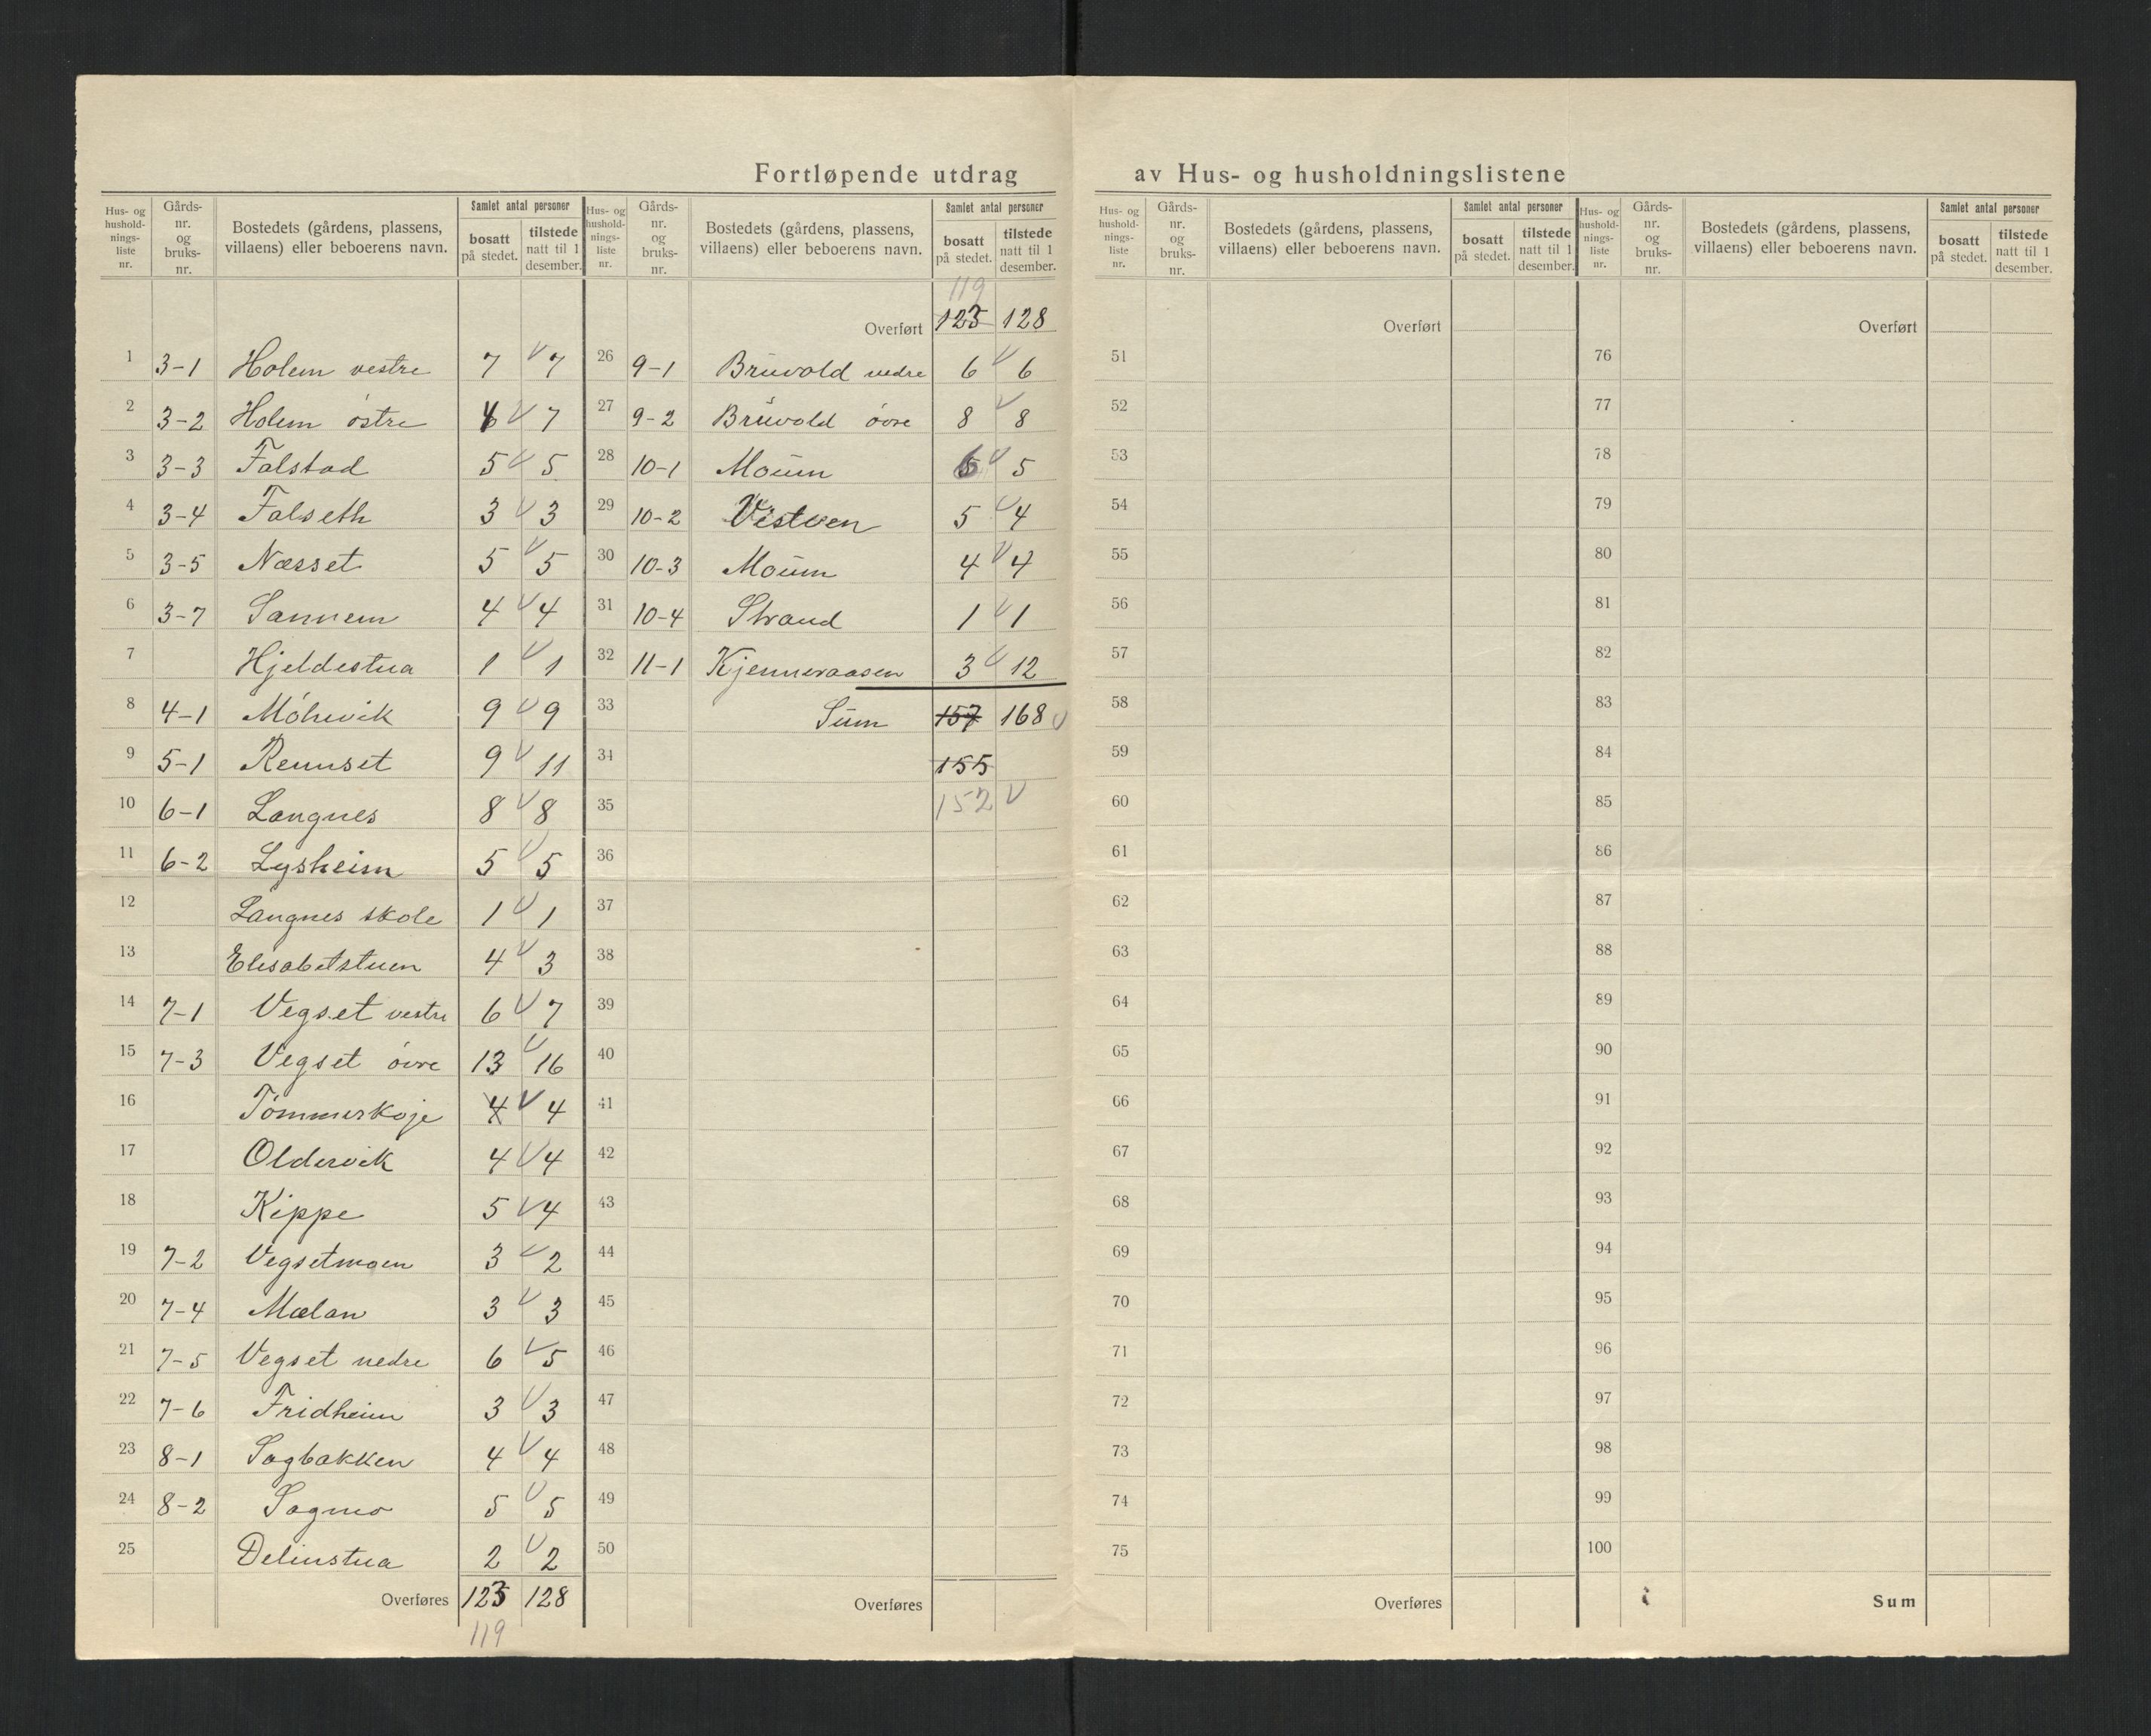 Fortløpende utdrag av Hus- og husholdningslistene
Hus- og hushold- nings- liste nr. | Gårds- nr. og bruks- nr. | Bostedets (gårdens, plassens, villaens) eller beboerens navn. | Samlet antal personer | bosatt på stedet. | tilstede natt til 1 desember.
1 3-1 Holem vestre 7 V 7
2 3-2 Holem östre 6 V 7
3 3-3 Falstad 5 V 5
4 3-4 Falseth 3 V 3
5 3-5 Næsset 5 V 5
6 3-7 Sannem 4 V 4
7 Hjeldestua 1 V 1
8 4-1 Móhevik 9 V 9
9 5-1 Rennset 9 V 11
10 6-1 Langnes 8 V 8
11 6-2 Lysheim 5 V 5
12 Langnes skole 1 V 1
13 Elisabetstuen 4 V 3
14 7-1 Vegset vestre 6 V 7
15 7-3 Vegset óvre 13 V 16
16 Tómmerkoje 4 V 4
17 Oldervik 4 V 4
18 Kippe 5 V 4
19 7-2 Vegsetmoen 3 V 2
20 7-4 Mælan 3 V 3
21 7-5 Vegset nedre 6 V 5
22 7-6 Fridheim 3 V 3
23 8-1 Sagbakken 4 V 4
24 8-2 Sagmo 5 V 5
25 Delinstua 2 V 2
Overføres 123 128
119
Hus- og hushold- nings- liste nr. | Gårds- nr. og bruks- nr. | Bostedets (gårdens, plassens, villaens) eller beboerens navn. | Samlet antal personer | bosatt på stedet. | tilstede natt til 1 desember.
119
Overført 123 128
26 9-1 Brŭvold nedre 6 V 6
27 9-2 Brŭvold óvre 8 V 8
28 10-1 Moŭm 6 V 5
29 10-2 Vestven 5 V 4
30 10-3 Moŭm 4 V 4
31 10-4 Strand 1 V 1
32 11-1 Kjenneraasen 3 V 12
33 Sŭm 157 168 V
34 155
35 152 V
36
37
38
39
40
41
42
43
44
45
46
47
48
49
50
Overføres
Hus- og hushold- nings- liste nr. | Gårds- nr. og bruks- nr. | Bostedets (gårdens, plassens, villaens) eller beboerens navn. | Samlet antal personer | bosatt på stedet. | tilstede natt til 1 desember.
Overført
51
52
53
54
55
56
57
58
59
60
61
62
63
64
65
66
67
68
69
70
71
72
73
74
75
Overføres
Hus- og hushold- nings- liste nr. | Gårds- nr. og bruks- nr. | Bostedets (gårdens, plassens, villaens) eller beboerens navn. | Samlet antal personer | bosatt på stedet. | tilstede natt til 1 desember.
Overført
76
77
78
79
80
81
82
83
84
85
86
87
88
89
90
91
92
93
94
95
96
97
98
99
100
Sum